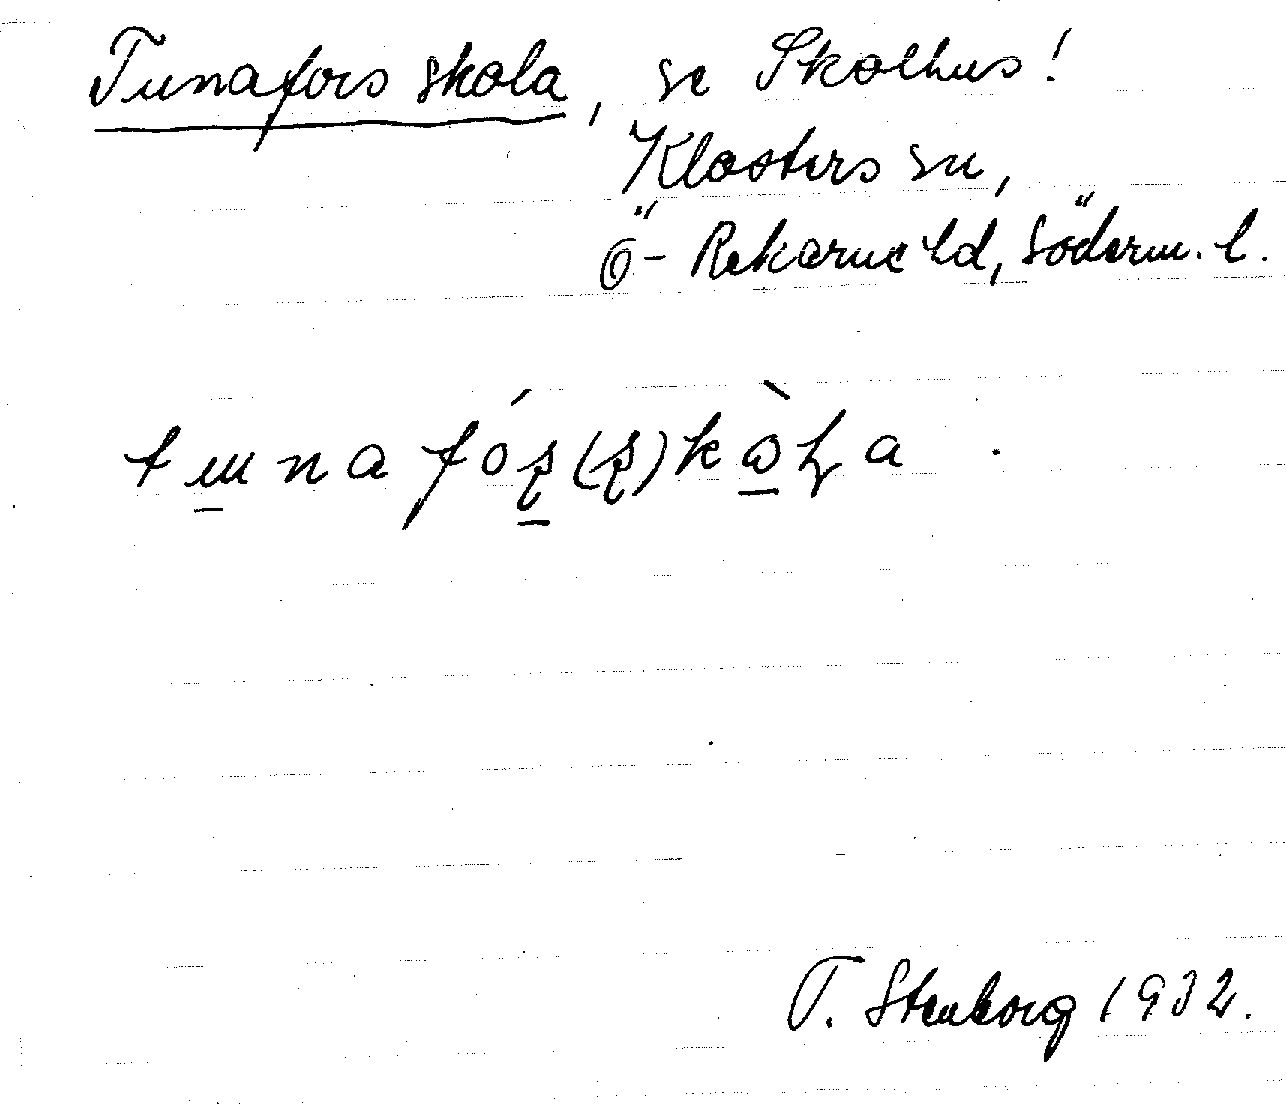 Tunafors skola, se Skolhus!
Klosters sn,
Ö-Rekarne hd, Söderm. l.
tɯnafóʂ(ʂ)kàɽa.
T. Stenborg 1932.